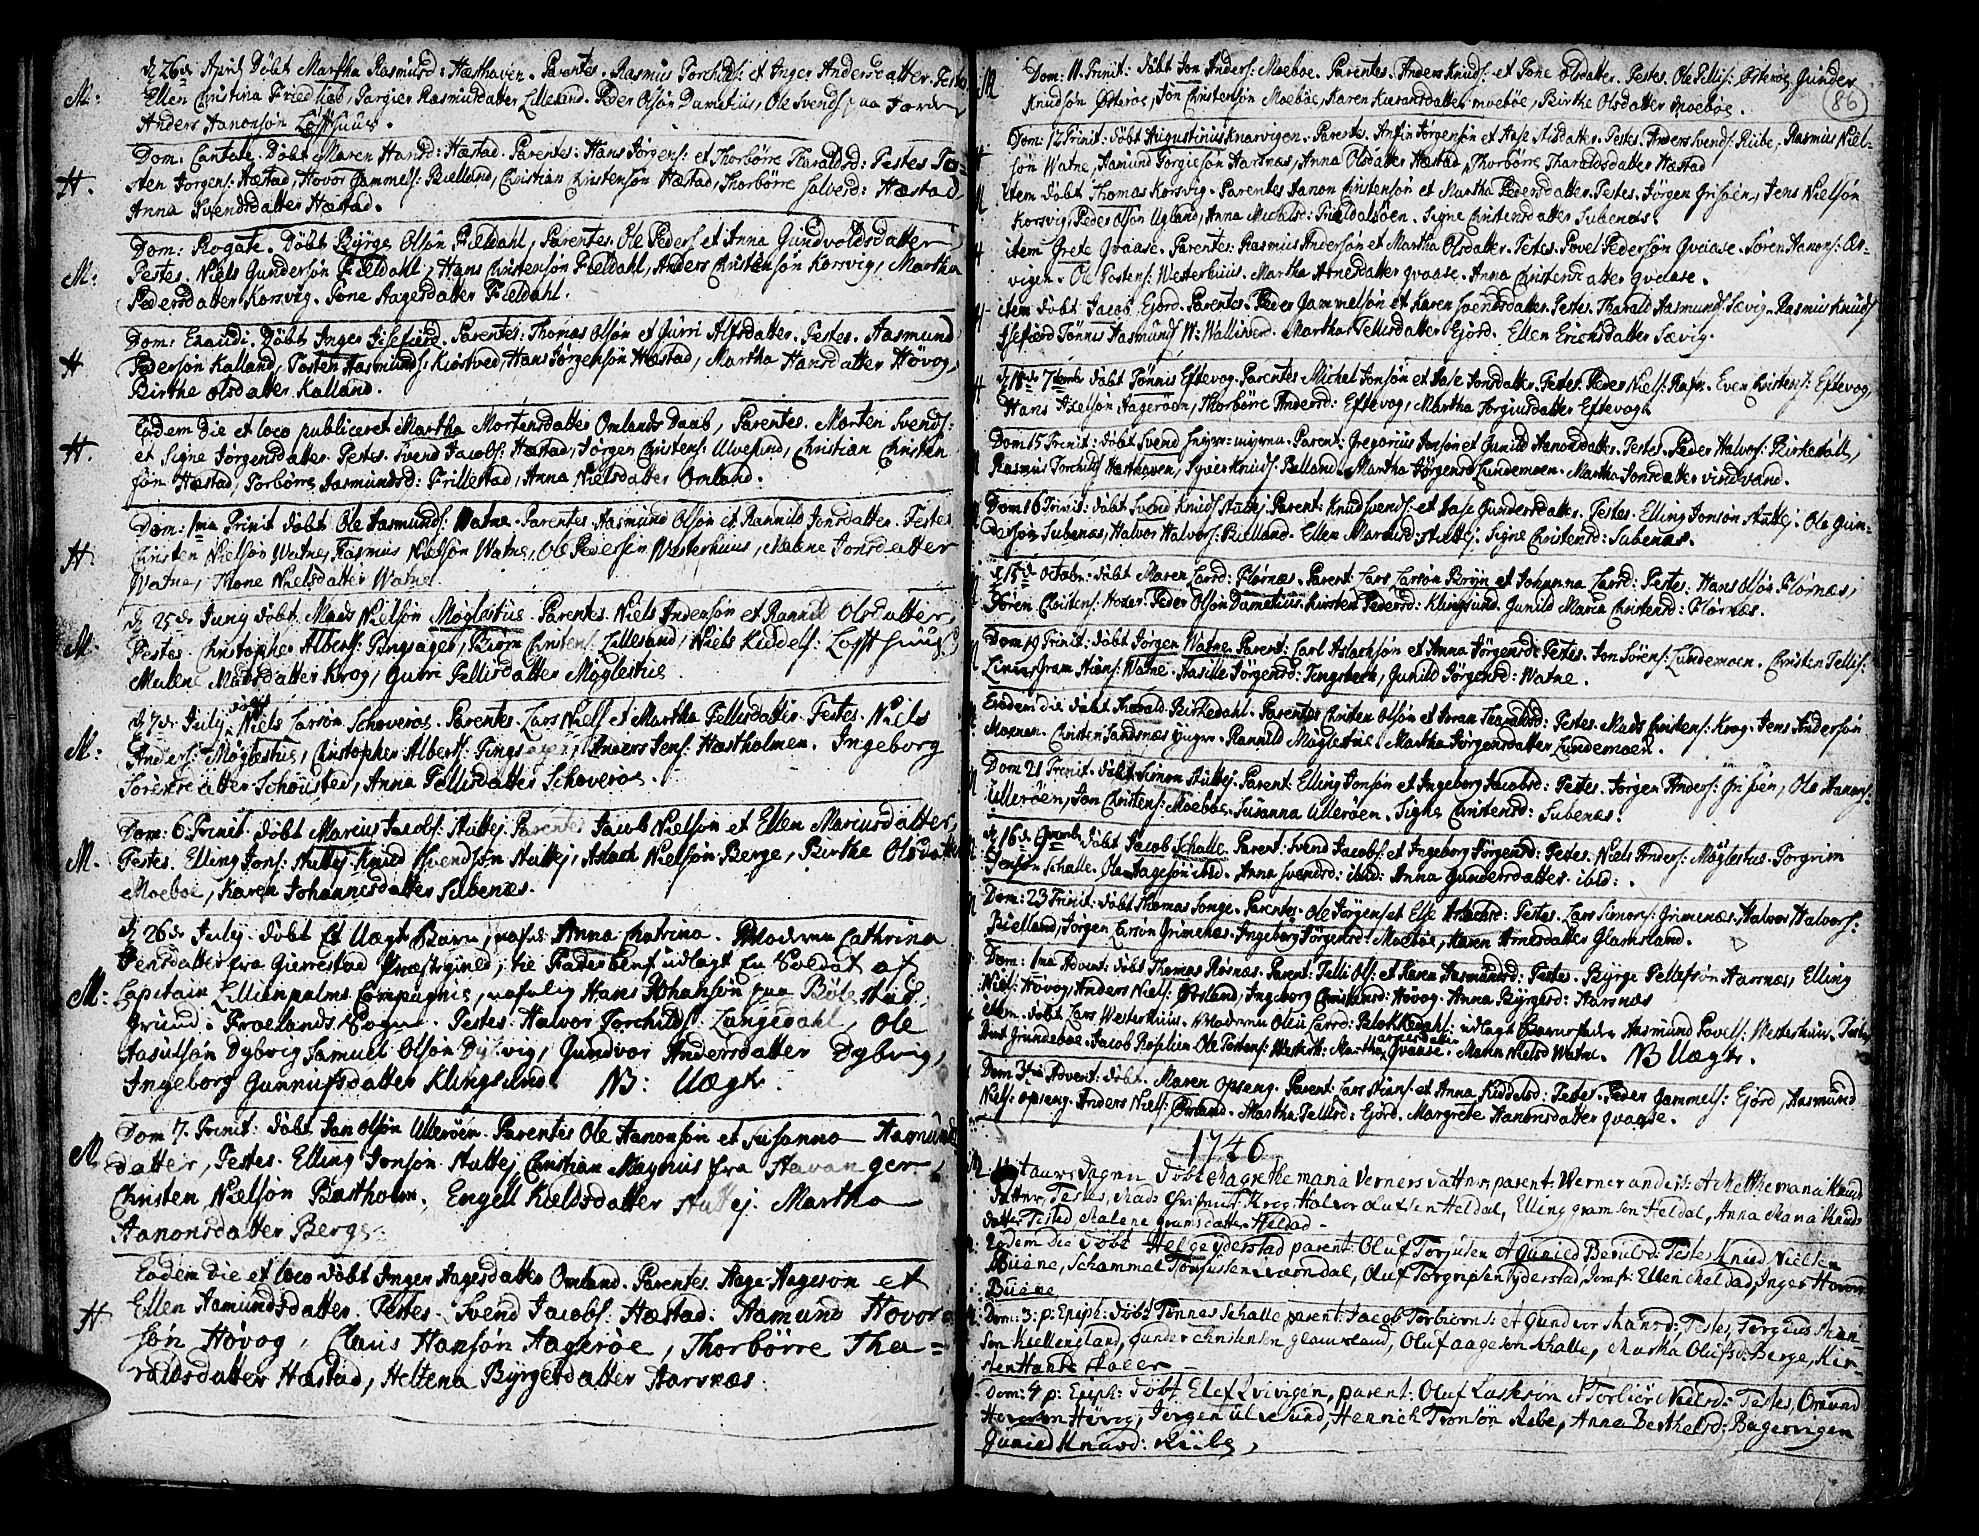 M: d 26de April Døbt Martha Rasmusd: Hæsthaven. Parentes. Rasmus Torchilds: et Inger Andersdatter. Testes
Ellen Christina Friedlieb, Targier Rasmusdatter Lillesand. Peder Olsøn Dametius, Ole Svends paa
Anders Aanonsøn Loffthuus.
H. Dom: Cantate. Døbt Maren Hansd: Hæstad. Parentes: Hans Jørgens: et Thorbørre Tharaldsd: Testes To-
sten Jorgens: Hæstad, Hovor Gammels: Bielland, Christian Christensøn Hæstad, Thorbørre Salvesd: Hæstad,
Anna Svendsdatter Hæstad.
M: Dom: Rogate. Døbt Byrge Olsøn Fieldahl, Parentes. Ole Peders: et Anna Gundvoldsdatter,
Testes. Niels Gundersøn Fieldahl, Hans Christensøn Fieldahl, Anders Christensøn Korsvig, Martha
Pedersdatter Korsvig. Tone Aagesdatter Fieldahl.
H Dom: Exaudi. Døbt Inger Isefierd. Parentes. Thomas Olsøn et Gurri Alfsdatter. Testes. Aasmund
Pedersøn Kalland, Tosten Aasmunds: Kiøstved, Hans Jørgensøn Hæstad, Martha Hansdatter Høvog,
Birthe Olsdatter Kalland.
H. Eodem die et loco publiceret Martha Mortensdatter Omlands Daab, Parentes. Morten Svends:
et Signe Jørgensdatter. Testes. Svend Jacobs: Hæstad, Jørgen Christens: Ulvesund, Christian Christen
søn Hæstad, Torbørre Aasmundsd: Frillestad, Anna Nielsdatter Omland.
H. Dom: 1ma Trinit døbt Ole Aasmunds: Watne. Parentes Aasmund Olsøn et Rannild Jonsdatter. Testes
Christen Nielsøn Watne, Rasmus Nielsøn Watne, Ole Pedersøn Westerhuus, Malene Jonsdatter
Watne, Thone Nielsdatter Watne.
M. d 25de Juny døbt Mads Nielsøn Møglestue. Parentes. Niels Andersøn et Rannild Olsdatter,
Testes. Christopher Alberts: Tingsager, Biørn Christens: Lillesand, Niels Kiddels: Loffthuus,
Malene Madsdatter Krog, Gurri Tellisdatter Møglestue.
M: d 7de July døbt Niels Larsøn Schoveroe. Parentes. Lars Niels: et Martha Tellisdatter. Testes. Niels
Anders: Møglestue, Christopher Alberts: Tingsager, Anders Jens: Hæstholmen. Ingeborg
Sørensdatter Schoustad, Anna Tellisdatter Schoveroe.
M. Dom: 6. Trinit: døbt Marcus Jacobs: Stuttej. Parentes Jacob Nielsøn et Ellen Mariusdatter,
Testes. Elling Jons: Stuttej, Knud Svendsøn Stuttej, Aslach Nielsøn Berge, Birthe Olsdatter
Moeboe, Karen Johannesdatter Subenæs.
M: d 26de July. døbt Et Uægte Barn, nafnl. Anna Chatrina. Moderen Cathrina
Jensdatter fra Gierrestad Præstegield, til Fader bent udlagt En Soldat af
Capitain Lillienpalms Compagnie, nafnlig Hans Johansøn paa Bøle
Grund i Froelands Sogn. Testes. Halvor Torchilds: Langedahl, Ole
Aasulsøn Dybvig Samuel Olsøn Dybvig, Gundvor Andersdatter Dybvig,
Ingeborg Gunnufsdatter Klingsund. NB: Uægte.
M Dom 7. Trinit: døbt Jan Olsøn Ullerøen. Parentes Ole Aanonsøn et Susanna Aasmund
datter, Testes. Elling Jonsøn Stuttej, Christian Magnus fra Stavanger,
Christen Nielsøn Bæstholm. Engell Kieldsdatter Stuttej. Martha
Aanonsdatter Berge.
H Eodem die et loco døbt Inger Aagesdatter Omland. Parentes. Aage Aageson et
Ellen Aamundsdatter. Testes. Svend Jacobs: Hæstad. Aamund Hovor
søn Høvog, Claus Hansøn Aagerøe, Thorbørre Tha-
raldsdatter Hæstad, Heltena Byrgesdatter Aarsnæs.
86
M Dom: 11. Trinit: døbt Jon Anders: Moeboe. Parentes. Anders Knuds: et Tone Olsdatter. Testes. Ole Tellis: Østerøe, Gunder
Knudsøn Østerøe, Jon Christensøn Moebøe, Karen moebøe, Birthe Olsdatter Moebøe.
Dom: 12 Trinit: døbt Augustinus Knarvigen. Parentes. Anfin Jørgensøn et Aase Alsdatter. Testes. Anders Svends: Riibe, Rasmus Niel-
søn Watne, Aamund Aarsnæs, Anna Olsdatter Hæstad, Thorbørre Tharaldsdatter Hæstad
item døbt Thomas Korsvig. Parentes Aanon Christensøn et Martha Pedersdatter. Testes. Jørgen Grisøen, Jens Nielsøn
Korsvig, Peder Olsøn Ugland, Anna Michelsd: Fieldalsøen. Signe Christensdatter Subenæs.
item Grete Qvaase. Parentes. Rasmus Andersøn et Martha Olsdatter. Testes. Povel Pedersøn Qvaase. Søren Aanons: Os-
vigen. Ole Tostens: Westerhuus. Martha Arnesdatter Qvaase. Anna Christensdatter Qvaase.
item døbt Jacob Ejord. Parentes. Peder Gammelsøn et Karen Svendsdatter. Testes. Tharald Aasmunds: Sævig. Rasmus Knuds
Isefierd Tønnis Aasmunds: W: Walliwerd. Martha Tellisdatter Ejord. Ellen Erichsdatter Sævig.
d 18de 7tembr døbt Tønnis Eftevog. Parentes Michel Jonsøn et Aase Jonsdatter. Testes. Peder Niels: Even Christens: Eftevog,
Hans Axelsøn Aagerøen, Thorbørre Andersd: Eftevog, Martha Jorgiusdatter Eftevog.
Dom 15 Trinit: døbt Svend. Parent: Gregorius Jonsøn et Gunild Aanonsdatter. Testes. Peder Halvors: Birkedall,
Rasmus Torchilds: Hæsthaven, Syver Knuds: Bielland. Martha Jørgensd: Lundemoen. Martha Jonsdatter
Dom 16 Trinit: døbt Svend Knuds: Stuttej. Parent: Knud Svends: et Aase Gundersdatter. Testes. Elling Jonsøn Stuttej. Ole Gun-
dersøn Subenæs, Halvor Halvors: Bielland. Ellen Mariusd: Stuttej. Signe Christensd: Subenæs.
d 15de Octobr: døbt Maren Larsd: Flørnæs. Parent: Lars Larsøn Bryn et Johanna Larsd: Testes: Hans Olsøn Flørnæs,
Søren Christens: Peder Olsøn Dametius. Kirsten Pedersd: Klingsund. Gunild Maria Christensd: Flørnæs.
Dom 19 Trinit: døbt Jørgen Watne Parent: Carl Aslachsøn et Anna Jørgensd: Testes. Jon Sørens: Lundemoen. Christen Tellis:
Watne. Aasille Jørgensd: Gunild Jørgensd: Watne.
Eodem die døbt Tharald Birkedahl. Parentes Christen Olsøn et Joran Tharaldsd: Testes. Mads Christens: Krog. Jens Andersøn
Moenæs. Christen Sandsnæs Rannild Møglestue. Martha Jørgensdatter Lundemoen.
Dom 21 Trinit: døbt Simon Stuttej. Parent: Elling Jonsøn et Ingeborg Jacobsd: Testes. Jørgen Anders: Grisøen, Ole Aanons:
Ullerøen, Jon Christens: Moeboe. Susanna Ullerøen. Signe Christensd: Subenæs.
d 16de 9vembr døbt Jacob Schalle. Parent: Svend Jacobs: et Ingeborg Jørgensd: Testes. Niels Anders: Møglestue. Torgrim
Jensøn Schalle. Ole Aagesøn ibid. Anna Svendsd: ibid: Anna Gundersdatter ibid:.
Dom: 23 Trinit: døbt Thomas Songe. Parentes. Ole Jørgens: et Else Testes. Lars Simons: Grimenæs, Halvor Halvors:
Bielland, Jørgen Larsøn Grimenæs. Ingeborg Jørgensd: Moeboe, Karen Arnesdatter Glamsland.
Dom: 1ma Advent: døbt Thomas Røsnæs. Parent: Telli Ols: et Karen Aasmunsd: Testes. Byrge Tellefsøn Aarsnæs, Elling
Niels: Høvog, Anders Niels: Ørsland, Ingeborg Christensd: Høvog. Anna Byrgesd: Aarsnæs
item. døbt Lars Westerhuus. Moderen Oleu Larsd: udlagt Barnefader Aasmund Povels: Westerhuus. Testes
Grundeboe. Jacob Ole Tostens: Westerh: Martha Arnesdatter Qvaase. Maren Nielsd Watne. NB Uægte.
Dom 3tia Advent. døbt. Maren Opseng. Parent: Lars Stians: et Anna Kiddelsd: Testes. Peder Gammels: Ejord, Aasmund
Niels: Opseng. Anders Niels: Ørsland. Martha Tellisd: Ejord. Margrete Aanonsdatter Qvaase.
1746
Nytaars Dagen døbt Magrethe Maria Verners datter, parent: Werner anders: et Knud
datter, Testes, Mads Christens: Krog. Halvor Olufsen Heldal, Elling gramsen Heldal, Anna Maria Knuds
datter Tested, Malene gramsdatter Heldad.
Eodem die døbt Helge yderstad parent: Oluf Torgusen et gunild Berulsd: Testes, Knud Nielsen
Buene, Schammel Oluf Torgrissen yderstad, Ellen Inger Hovor
Buene
Dom: 3. p: Epiph: døbt Tønnas Schalle parent: Jacob Torbiørns: et gundvor Testes, Torgius Stian-
sen Kiellingland, gunder Christensen glamsland, Oluf aagesen Schalle, Martha Olufsd: Berge, Kir-
sten
Dom: 4 p: Epiph: døbt Elef Qvivigen, parent: Oluf et Torbiør Nielsd: Testes, Omund
Hovorsen Høvog, Jørgen Ulvesund, Henrich Tronsøn Riibe, Anna Berthelsd: Bagervigen
gunild Knudsd: Riibe,